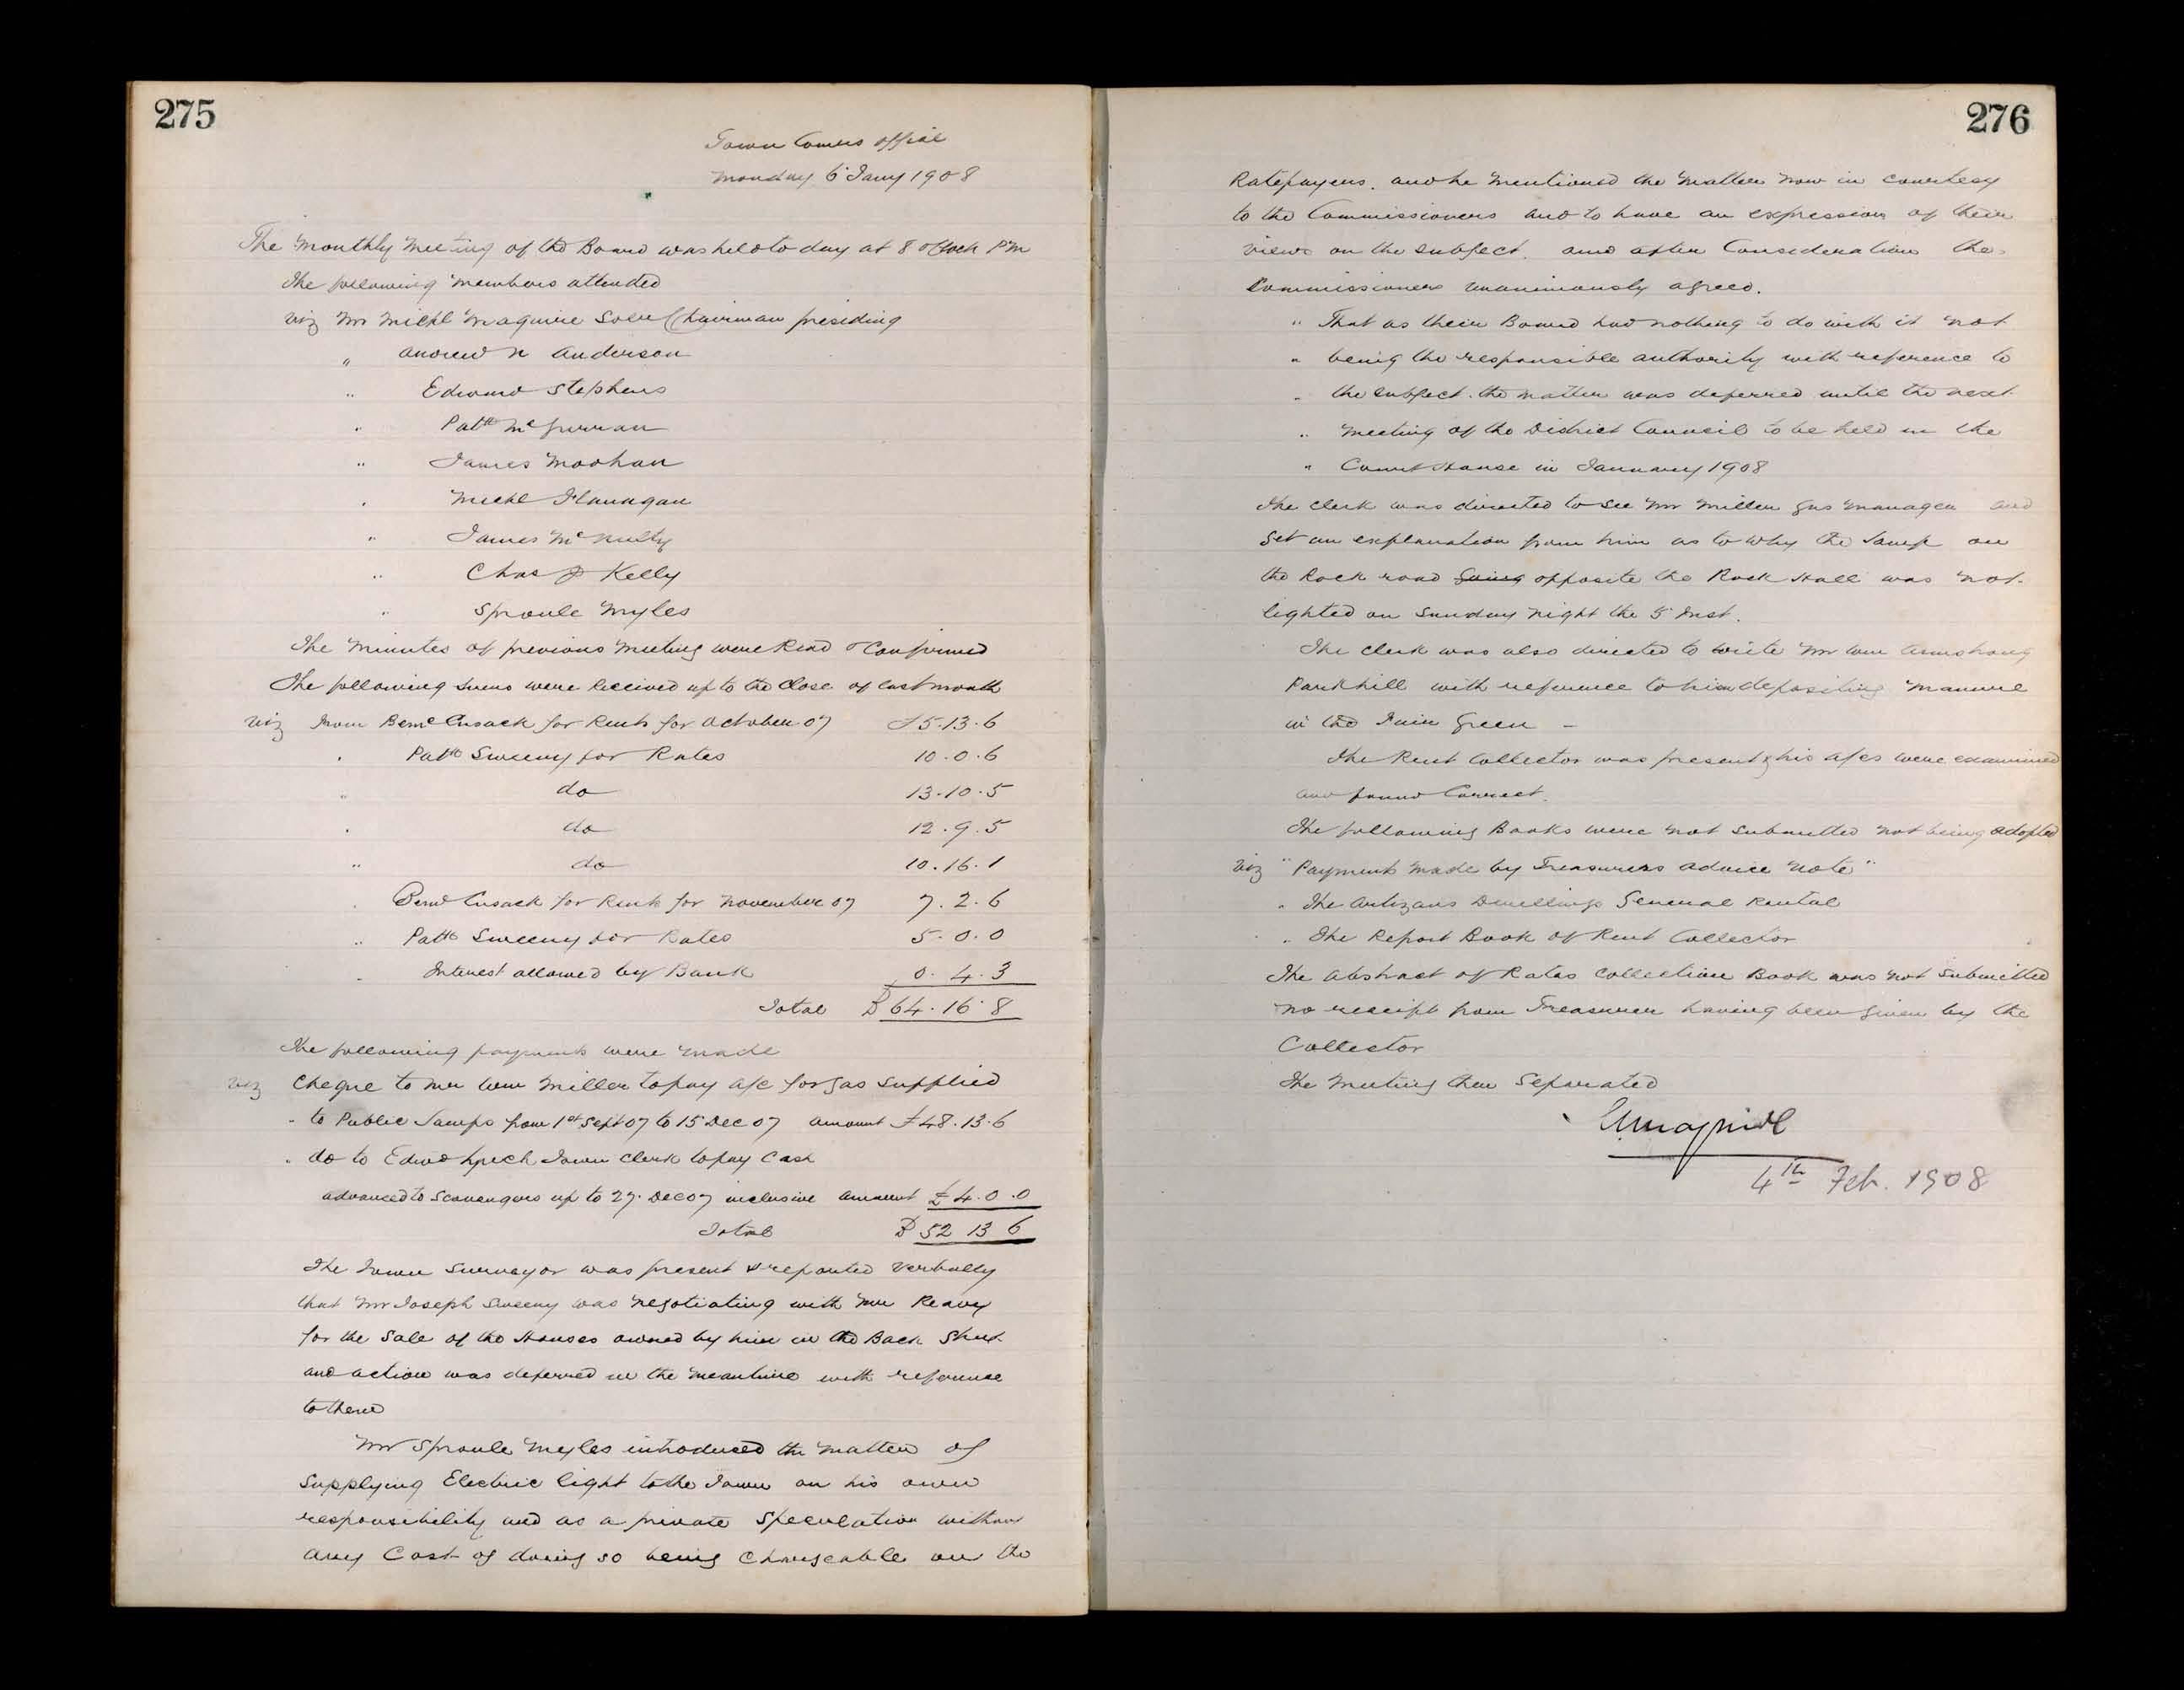 275
Town Comrs office
Monday 6 Jany 1908
The Monthly Meeting of the Board was held to day at 8 oClock PM
The following Members attended
viz Mr Michl Maguire Solr Chairman presiding
" Andrew N Anderson
" Edward Stephens
" Patk McGurran
" James Moohan
" Michl Flanagan
" James McNulty
" Chas P Kelly
" Sproule Myles
The Minutes of previous Meeting were Read & Confirmed
The following sums were Received up to the close of last month
viz From Bernd Cusack for Rents for October 07 £5.13.6
" Patk Sweeny for Rates 10.0.6
" do 13.10.5
" do 12.9.5
" do 10.16.1
" Bernd Cusack for Rents for November 07 7.2.6
" Patk Sweeny for Rates 5.0.0
" Interest allowed by Bank 0.4.3
Total £64.16.8
The following payments were made
viz Cheque to Mr Wm Miller to pay a/c for gas supplied
" to Public Lamps from 1st Sept 07 to 15 Dec 07 amount £48.13.6
" do to Edwd Town Clerk to pay Cash
advanced to Scavengers up to 27. Dec 07 inclusive amount £4.0.0
Total £52 13 6
The Town Surveyor was present & reported verbally
that Mr Joseph Sweeny was negotiating with Mr Reavy
for the Sale of the Houses owned by him in the Back Street
and action was deferred in the meantime with reference
to them
Mr Sproule Myles introduced the Matter of
Supplying Electric light to the Town on his own
responsibility and as a private Speculation without
any Cost of doing so being Chargeable on the
276
Ratepayers. and he Mentioned the Matter now in courtesy
to the Commissioners and to have an expression of their
views on the subject. and after Consideration the
Commissioners unanimously agreed.
" That as their Board had nothing to do with it not
" being the responsible authority with reference to
" the subject. the matter was deferred until the next
" Meeting of the District Council to be held in the
" Court House in January 1908
The Clerk was directed to See Mr Miller Gas Manager and
Get an explanation from him as to why the Lamp on
the Rock road opposite the Rock Hall was not
lighted on Sunday night the 5 Inst.
The Clerk was also directed to write Mr Wm Armstrong
Parkhill with reference to him depositing Manure
in the Fair Green -
The Rent Collector was present & his a/cs were examined
and found Correct.
The following Books were not submitted not being adopted
viz "Payments made by Treasurers advice Note"
" The Artizans Dwellings General Rental
" The Report Book of Rent Collector
The Abstract of Rates Collection Book was not submitted
no receipt from Treasurer having been given by the
Collector
The Meeting then Separated
4th Feb. 1908